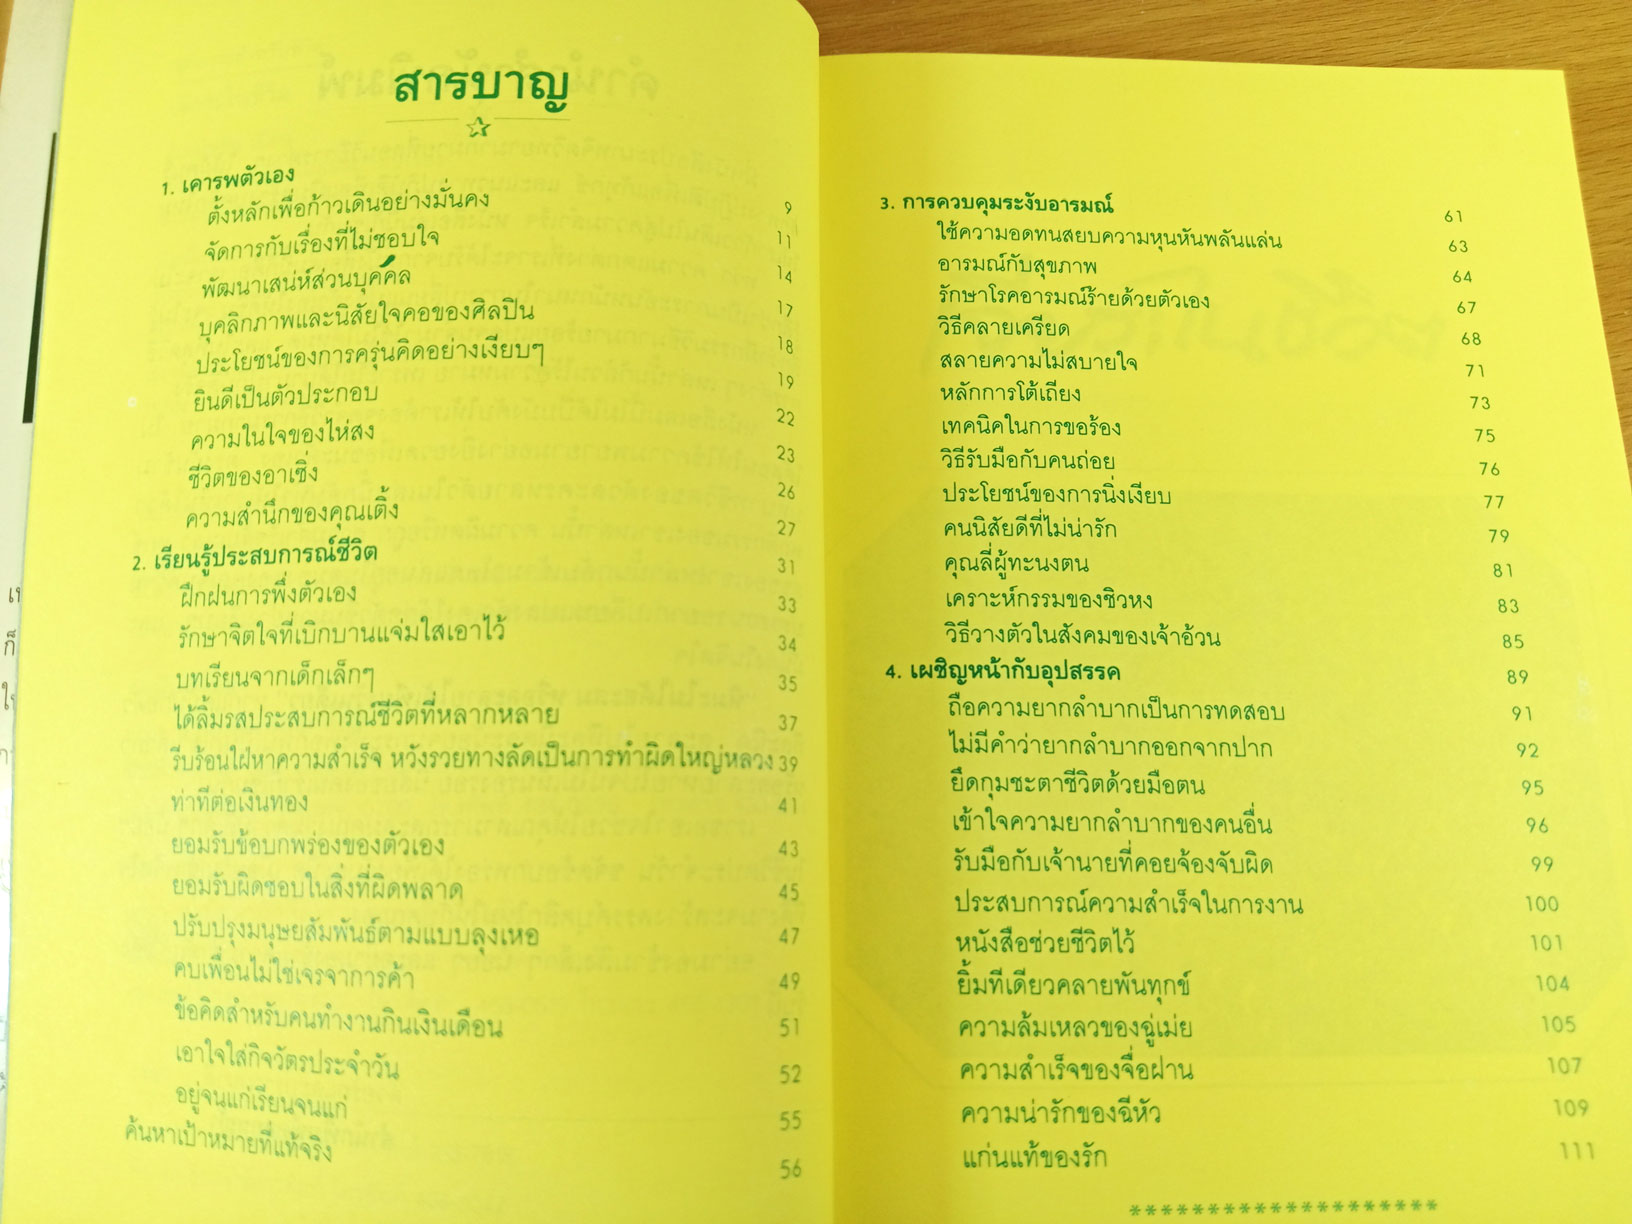 สารบาญ
1. เคารพตัวเอง 9
ตั้งหลักเพื่อก้าวเดินอย่างมั่นคง 11
จัดการกับเรื่องที่ไม่ชอบใจ 14
พัฒนาเสน่ห์ส่วนบุคคล 17
บุคลิกภาพและนิสัยใจคอของศิลปิน 18
ประโยชน์ของการครุ่นคิดอย่างเงียบๆ 19
ยินดีเป็นตัวประกอบ 22
ความในใจของไห่สง 23
ชีวิตของอาเซิ่ง 26
ความสำนึกของคุณเติ้ง 27
2. เรียนรู้ประสบการณ์ชีวิต 31
ฝึกฝนการพึ่งตัวเอง 33
รักษาจิตใจที่เบิกบานแจ่มใสเอาไว้ 34
บทเรียนจากเด็กเล็กๆ 35
ได้ลิ้มรสประสบการณ์ชีวิตที่หลากหลาย 37
รีบร้อนใฝ่หาความสำเร็จ หวังรวยทางลัดเป็นการทำผิดใหญ่หลวง 39
ท่าทีต่อเงินทอง 41
ยอมรับข้อบกพร่องของตัวเอง 43
ยอมรับผิดชอบในสิ่งที่ผิดพลาด 45
ปรับปรุงมนุษยสัมพันธ์ตามแบบลุงเหอ 47
คบเพื่อนไม่ใช่เจรจาการค้า 49
ข้อคิดสำหรับคนทำงานกินเงินเดือน 51
เอาใจใส่กิจวัตรประจำวัน 52
อยู่จนแก่เรียนจนแก่ 55
ค้นหาเป้าหมายที่แท้จริง 56
3. การควบคุมระงับอารมณ์ 61
ใช้ความอดทนสยบความหุนหันพลันแล่น 63
อารมณ์กับสุขภาพ 64
รักษาโรคอารมณ์ร้ายด้วยตัวเอง 67
วิธีคลายเครียด 68
สลายความไม่สบายใจ 71
หลักการโต้เถียง 73
เทคนิคในการขอร้อง 75
วิธีรับมือกับคนถ่อย 76
ประโยชน์ของการนิ่งเงียบ 77
คนนิสัยดีที่ไม่น่ารัก 79
คุณลี่ผู้ทะนงตน 81
เคราะห์กรรมของชิวหง 83
วิธีวางตัวในสังคมของเจ้าอ้วน 85
4. เผชิญหน้ากับอุปสรรค 89
ถือความยากลำบากเป็นการทดสอบ 91
ไม่มีคำว่ายากลำบากออกจากปาก 92
ยึดกุมชะตาชีวิตด้วยมือตน 95
เข้าใจความยากลำบากของคนอื่น 96
รับมือกับเจ้านายที่คอยจ้องจับผิด 99
ประสบการณ์ความสำเร็จในการงาน 100
หนังสือช่วยชีวิตไว้ 101
ยิ้มทีเดียวคลายพันทุกข์ 104
ความล้มเหลวของฉู่เม่ย 105
ความสำเร็จของจื่อฝาน 107
ความน่ารักของฉีหัว 109
แก่นแท้ของรัก 111
********************